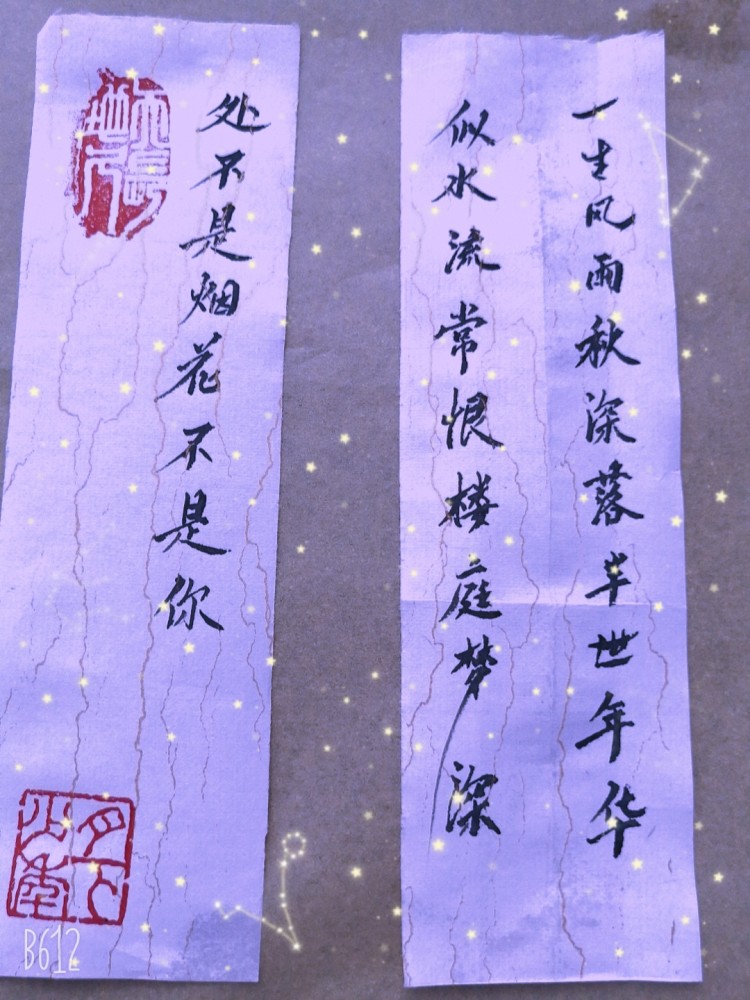 一生风雨秋深落半世年华
似水流常恨楼庭梦深
处不是烟花不是你
B612